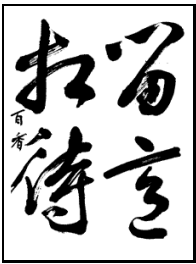 留意
相待
百香